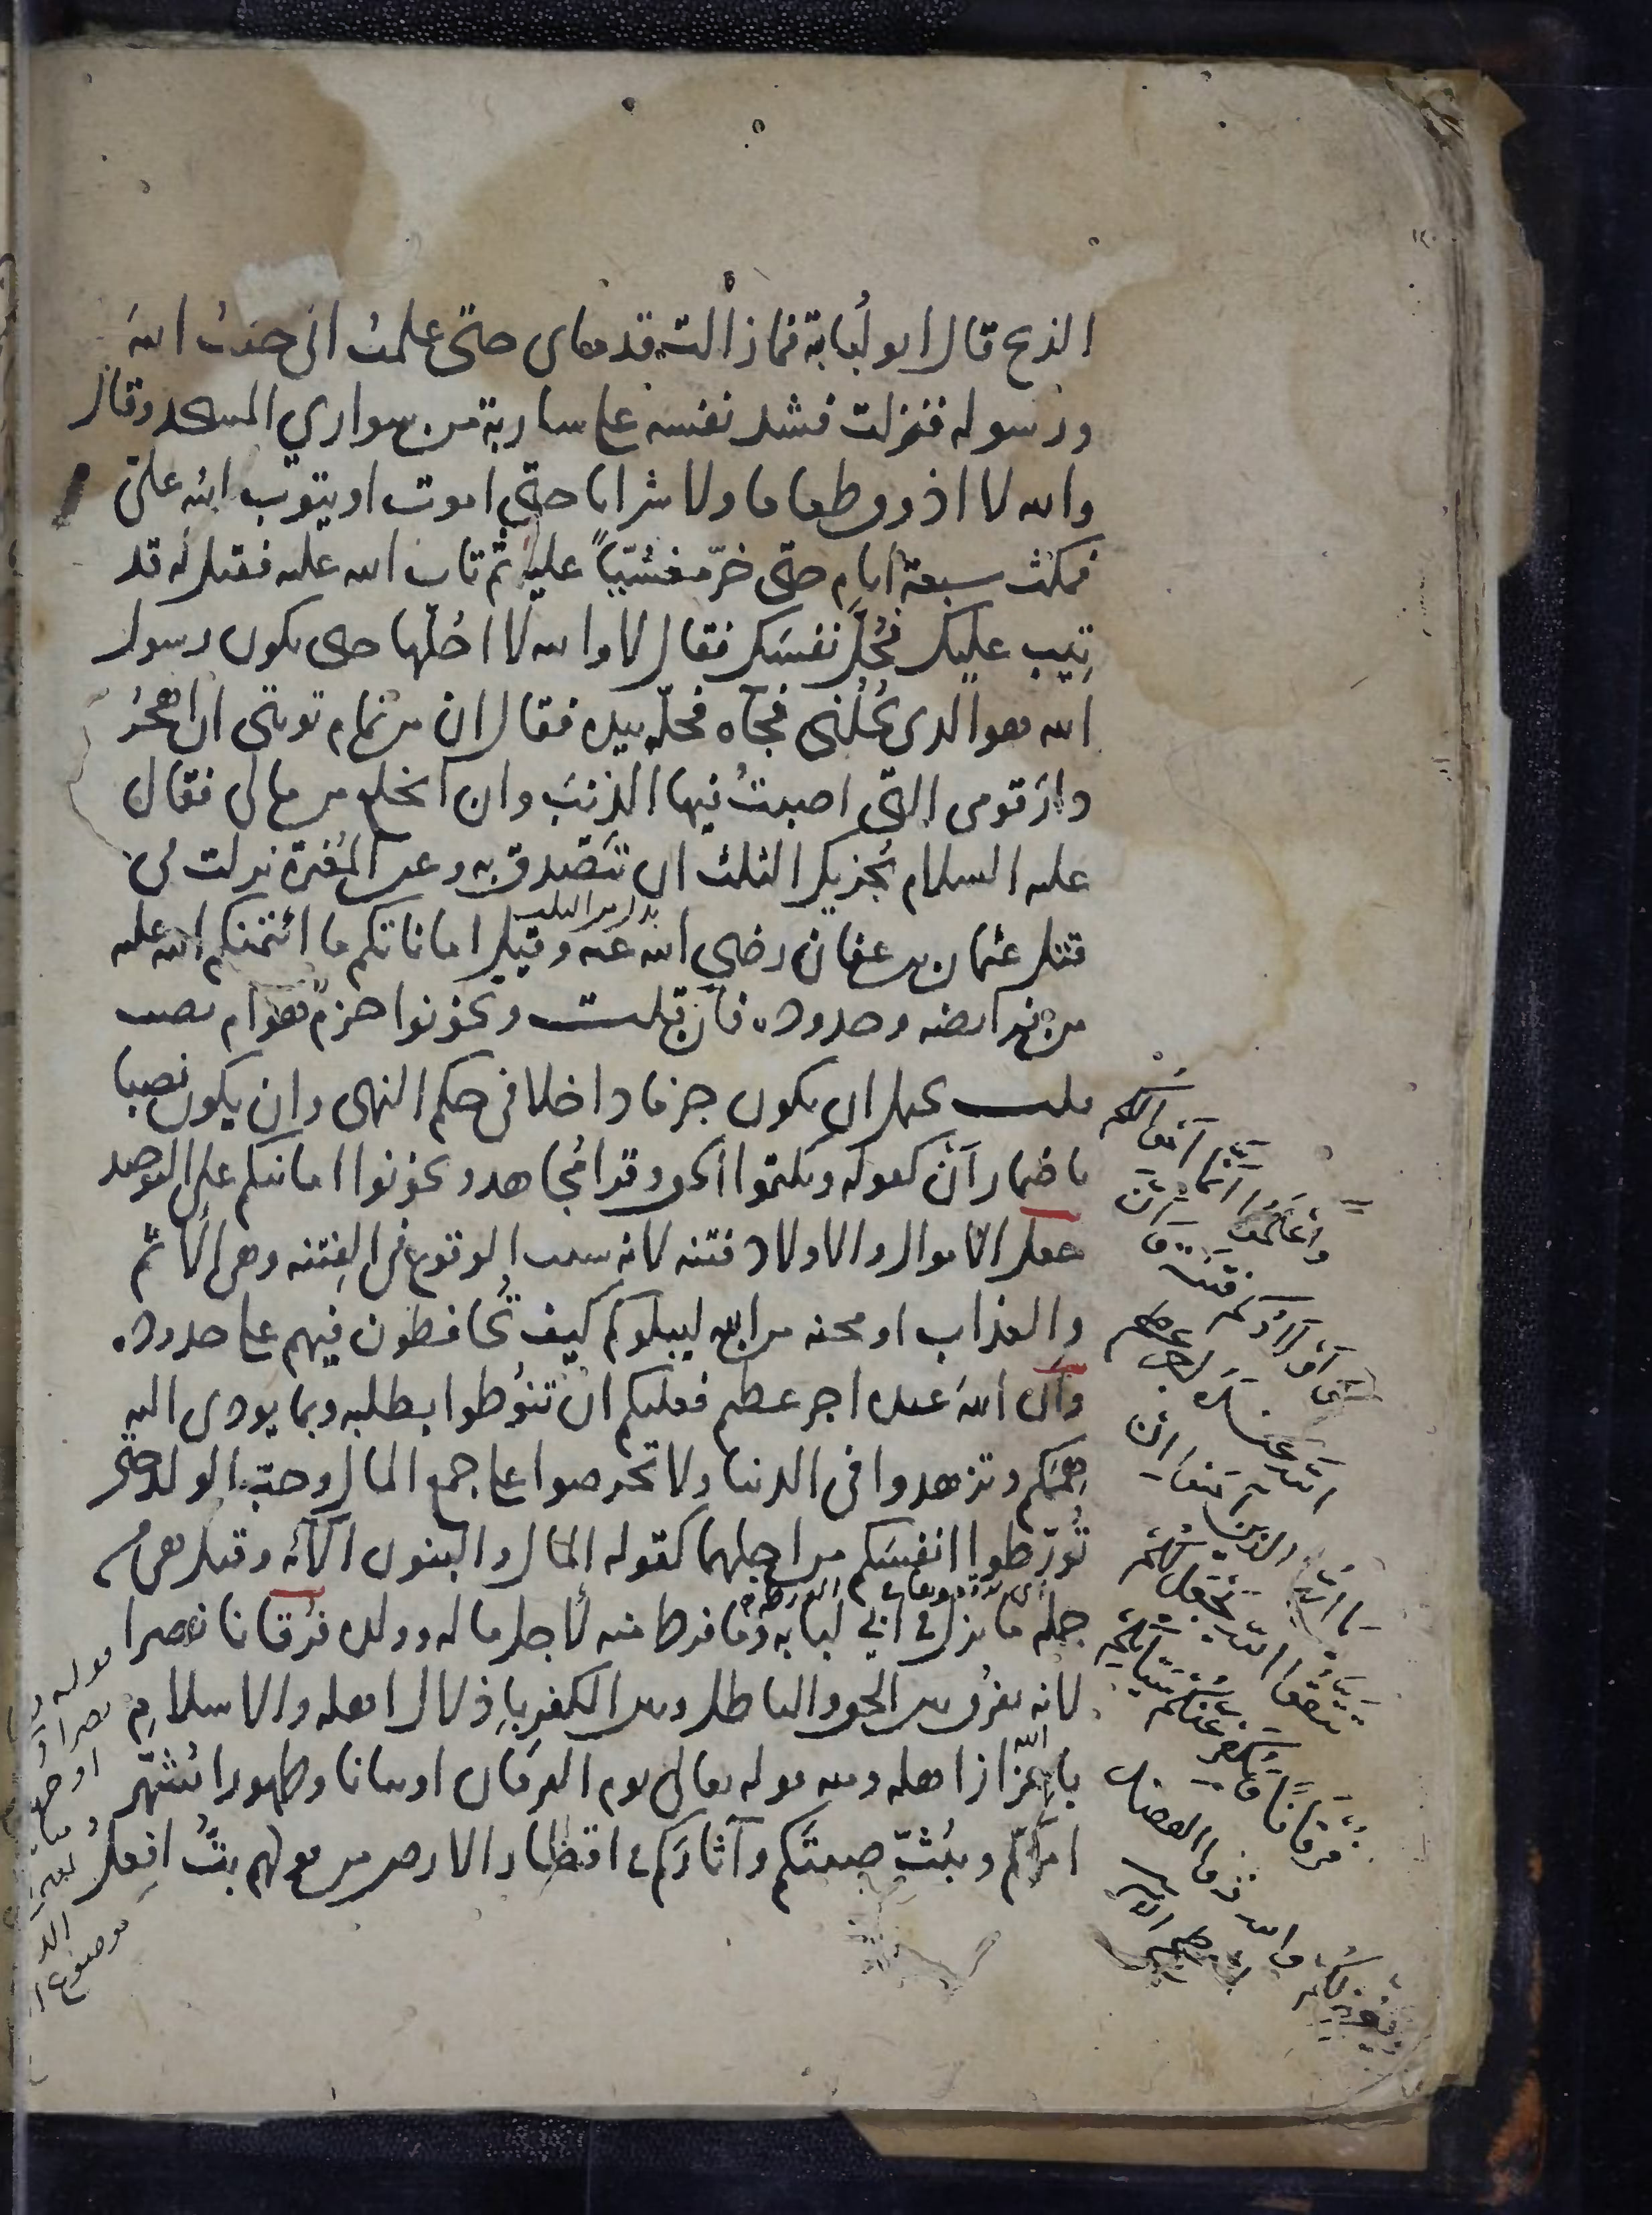 الذبح قال ابو لُبابة فما زالت قدماى حتى علمتُ انى خنتُ اللهَ
ورسوله فنزلت فشد نفسه على سارية من سواري المسجد وقال
والله لا اذوق طعاما ولا شرابا حتى اموت او يتوب الله علىّ
فمكث سبعة ايام حتى خرّ مغشيّاً عليه ثم تاب الله عليه فقيل له قد
تِيب عليك فحُلّ نفسَك فقال لا والله لا احُلّها حتى يكون رسول
الله هو الذى يَحُلّنى فجآه فحلّه بيده فقال ان من تمام توبتى ان اهجُر
دارَ قومى التى اصبتُ فيها الذنبَ وان انخلع من مالى فقال
عليه السلام يُجزيك الثلث ان تتصدق به وعن المُغيرة نزلت فى
قتل عثمان بن عفان رضي الله عنه وقيل اماناتكم ما ائتمنكم الله عليه
من فرائضه وحدوده فان قلت وتخونوا جزم هو ام نصب
قلت يحتمل ان يكون جزما داخلا فى حكم النهى وان يكون نصبا
باضمار أن كقوله وتكتموا الحق وقرا مُجاهد وتخونوا امانتكم على التوحيد
جعل الاموال والاولاد فتنه لانه سبب الوقوع فى الفِتنه وهى الاثم
والعذاب او محنه من الله ليبلوكم كيف تُحافظون فيهم على حدوده
وان اللهَ عنده اجر عظيم فعليكم ان تنُوطوا بطلبه وبما يودى اليه
هِمَمَكم وتزهدوا فى الدنيا ولا تحرصوا على جمع المال وحبّ الولد حتى
تُورّطوا انفسَكم من اجلهما كقوله المال والبنون الآيه وقيل هى من
جمله ما نزل فى ابي لبابه وما فرط منه لاجل ماله وولده فُرقانا نصرا
لانه يفرُق بين الحق والباطل وبين الكفر باِذلال اهله والاسلامِ
باِعزاز اهله ومنه قوله تعالى يوم الفرقان او بيانا وظهورا يُشهّر
امركم ويبُثّ صِيتَكم وآثارَكم فى اقطار الارض من قولهم بتُّ افعلُ
وَاعْلَمُوا اَنَّمَا اَمْوَالُكُمْ
وَاَوْلَادُكُمْ فِتْنَةٌ وَاَنَّ
اللهَ عِنْدَهُ اَجْرٌ عَظِيمٌ
يا ايها الذين آمنوا ان
تتقوا الله يجعل لكم
فرقانا ويكفر عنكم سيئاتكم
ويغفر لكم والله ذو الفضل
العظيم